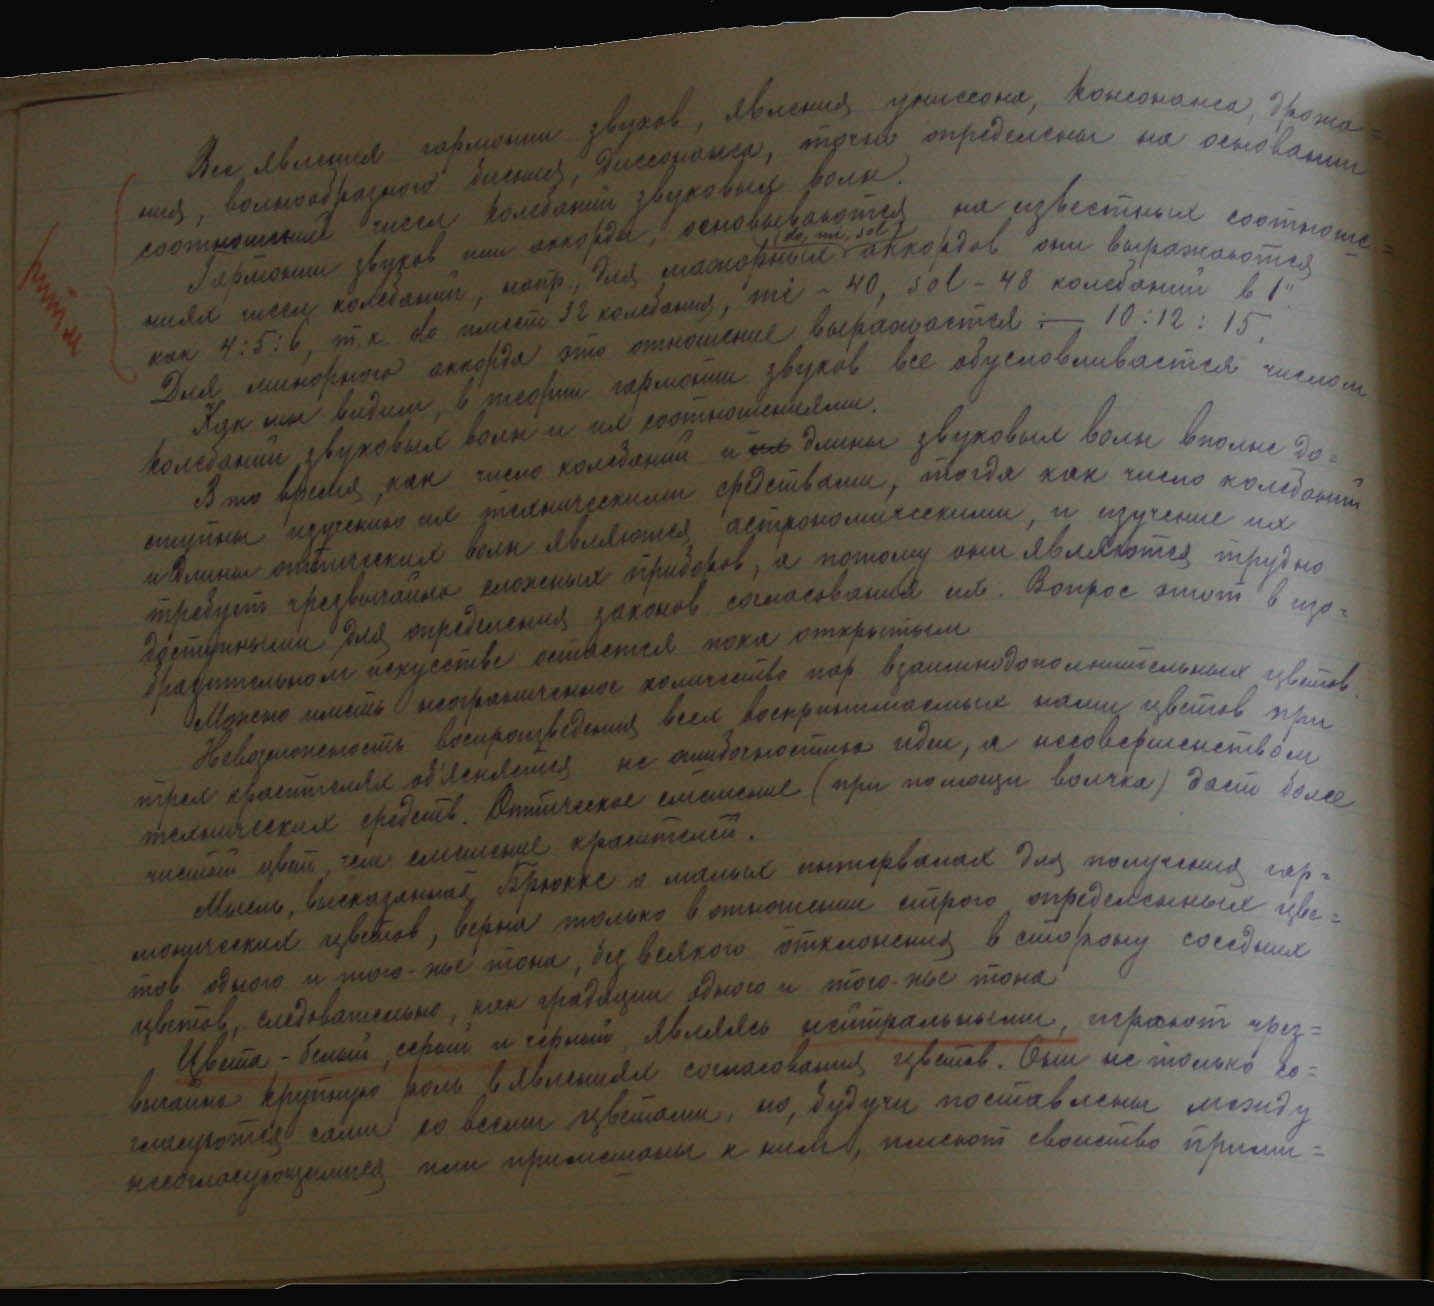 Все явления гармонии звуков, явления униссона, консонанса, дрожа=
ния, волнообразного биения, диссонанса, точно определены на основании
соотношений чисел колебаний звуковых волн.
Гармонии звуков или аккорды, основываются на известных соотноше=
(do, mi, sol)
ниях чисел колебаний, напр., для мажорных аккордов они выражаются
как 4:5:6, т.к. do имеет 32 колебания, mi - 40, sol - 48 колебаний в 1".
Для минорного аккорда это отношение выражается :— 10:12:15.
Как мы видим, в теории гармонии звуков все обусловливается числом
колебаний звуковых волн и их соотношениями.
В то время, как число колебаний и их длины звуковых волн вполне до=
ступны изучению их техническими средствами, тогда как число колебаний
и длины оптических волн являются астрономическими, и изучение их
требует чрезвычайно сложных приборов, а потому они являются трудно
доступными для определения законов согласования их. Вопрос этот в изо=
бразительном искусстве остается пока открытым
Можно иметь неограниченное количество пар взаимнодополнительных цветов.
Невозможность воспроизведения всех воспринимаемых нами цветов при
трех красителях об'ясняется не ошибочностью идеи, а несовершенством
технических средств. Оптическое смешение (при помощи волчка) дает более
чистый цвет, чем смешение красителей.
Мысль, высказанная Брюкке о малых интервалах для получения гар=
монических цветов, верна только в отношении строго определенных цве=
тов одного и того-же тона, без всякого отклонения в сторону соседних
цветов, следовательно, как градации одного и того-же тона
Цвета - белый, серый и черный, являясь нейтральными, играют чрез=
вычайно крупную роль в явлениях согласования цветов. Они не только со=
гласуются сами со всеми цветами, но, будучи поставлены между
несогласующимися или примешаны к ним, имеют свойство прими=